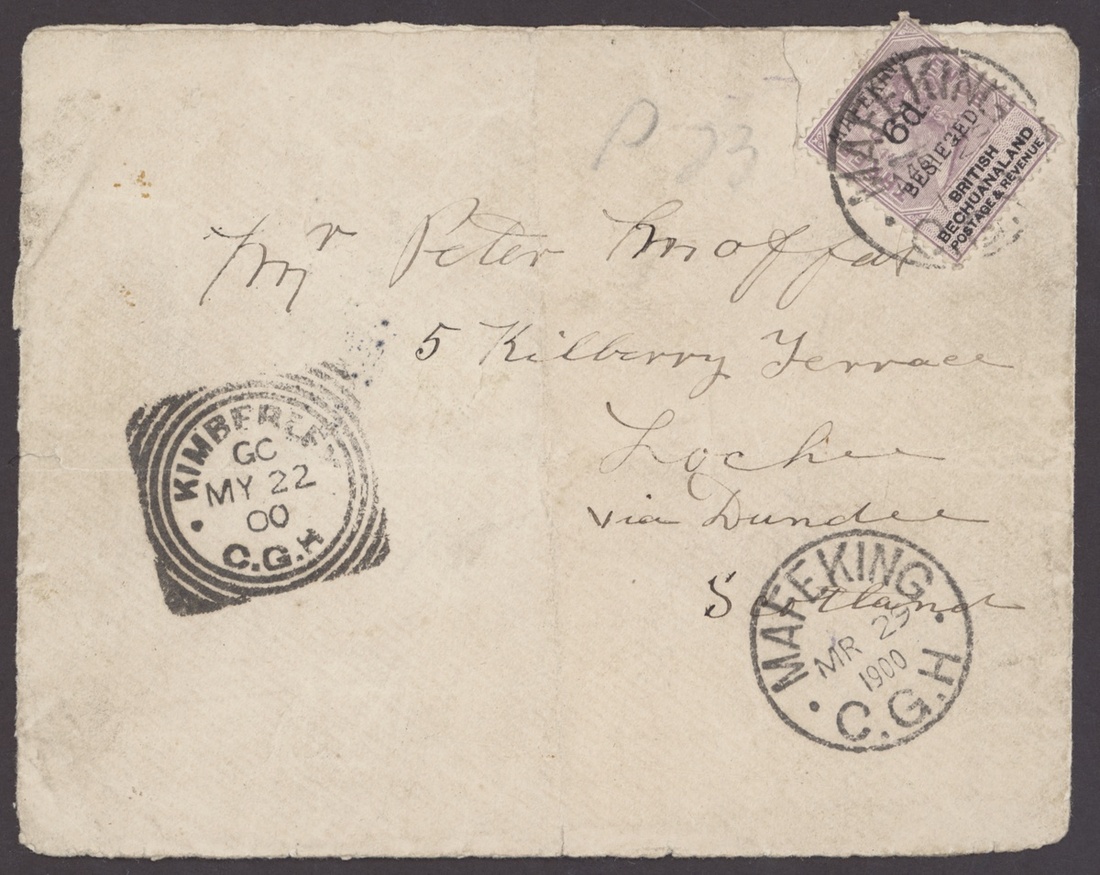 P 23
MAFEKING,
6d.
BESIEGED.
BRITISH
BECHUANALAND
POSTAGE & REVENUE
MAFEKING
Mr Peter Moffat
5 Kilberry Terrace
Lochee
via Dundee
Scotland
KIMBERLEY
GC
MY 22
00
C.G.H
MAFEKING
MR 29
1900
C.G.H